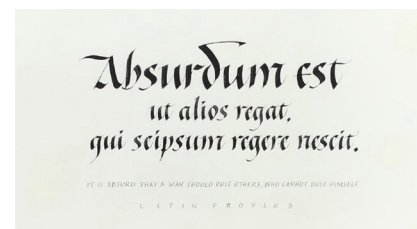 Absurdum est
ut alios regat,
qui seipsum regere nescit.
IT IS ABSURD THAT A MAN SHOULD RULE OTHERS, WHO CANNOT RULE HIMSELF
LATIN PROVERB